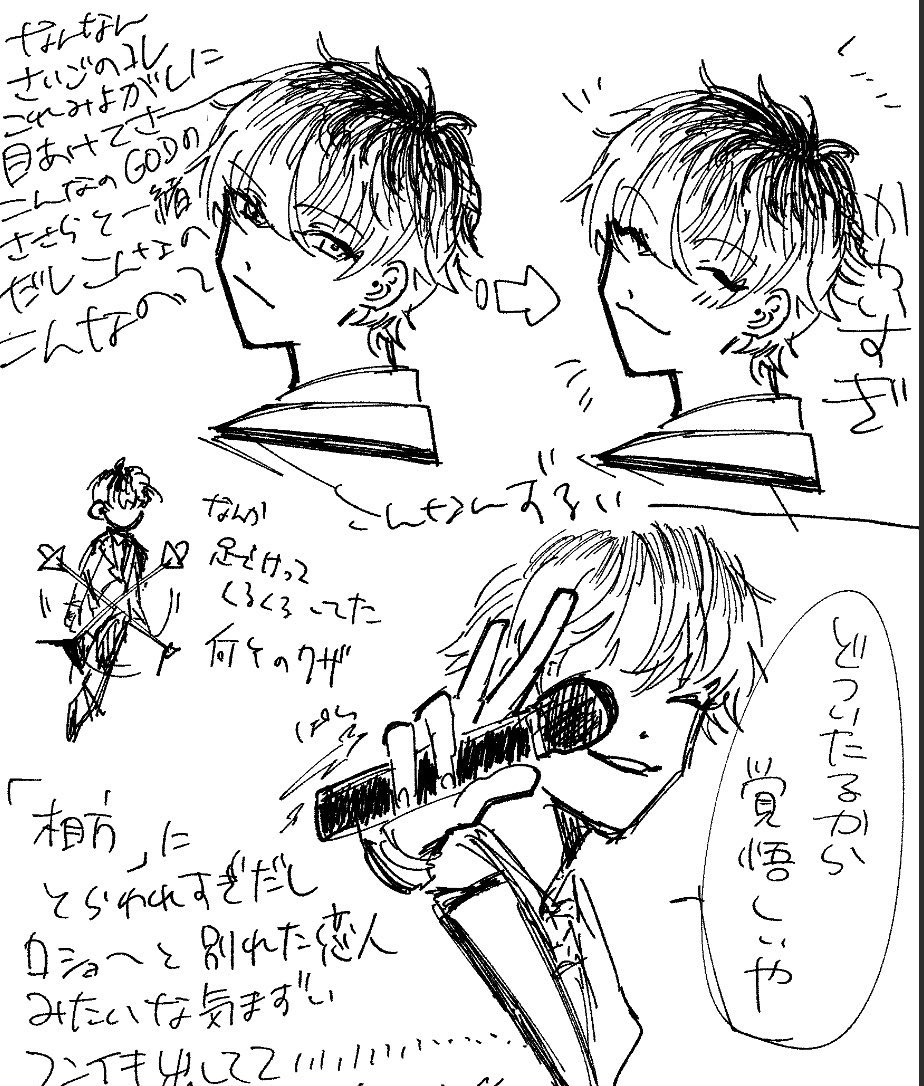 なんなん
さいごのコレ
これみよがしに
目あけてさー
こんなのGODの
ささらと一緒
だしこんなの
こんなの〜
すぎ
こんなんずるい
なんか
足でけって
くるくるしてた
何そのワザ
ぱし
どついたるから
覚悟しいや
「相方」に
とらわれすぎだし
ロショーへと別れた恋人
みたいな気まずい
フンイキ出してて